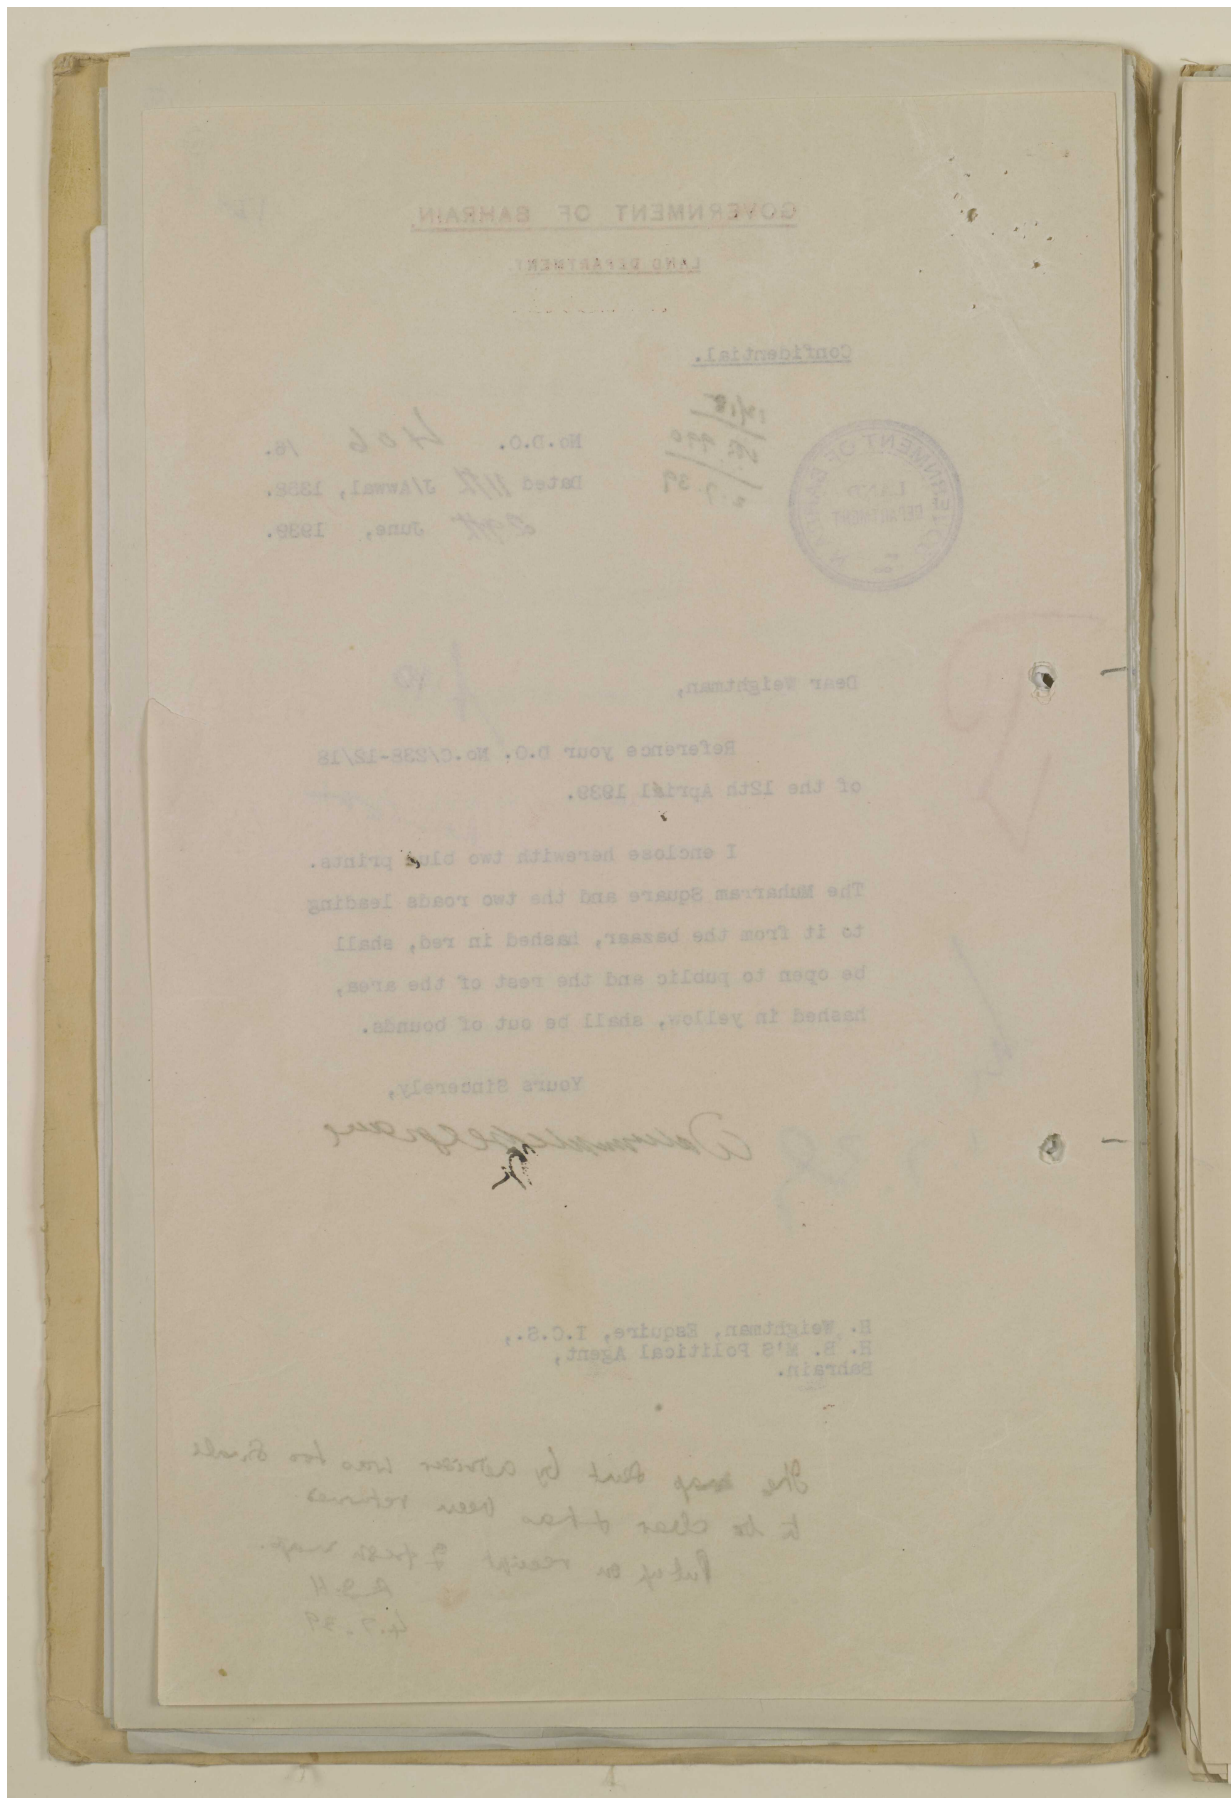 GOVERNMENT OF BAHRAIN.
LAND DEPARTMENT.
Confidential.
12/18
990
2.7.39
No.D.O. 406 18.
Dated 11th J/Awwal, 1358.
29th June, 1939.
GOVERNMENT OF BAHRAIN
LAND
DEPARTMENT
Dear Weightman,
Reference your D.O. No.C/238-12/18
of the 12th Aprial 1939.
I enclose herewith two blue prints.
The Muharram Square and the two roads leading
to it from the bazaar, hashed in red, shall
be open to public and the rest of the area,
hashed in yellow, shall be out of bounds.
Yours Sincerely,
H. Weightman, Esquire, I.C.S.,
H. B. M'S Political Agent,
Bahrain.
The map sent by adviser was too small
to be clear & has been returned
Put up on receipt of fresh map.
4.7.39